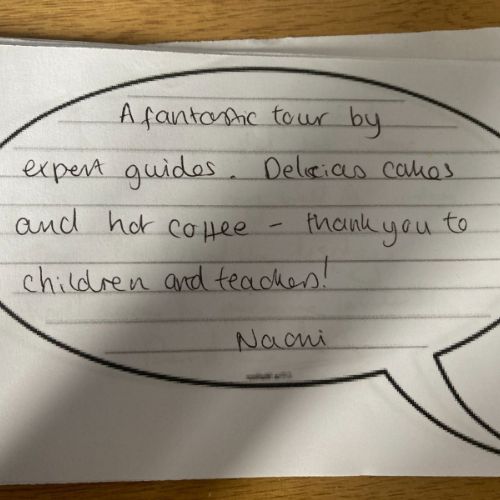 A fantastic tour by
expert guides. Delicias cakes
and hot coffee - thank you to
children and teachers!
Naomi